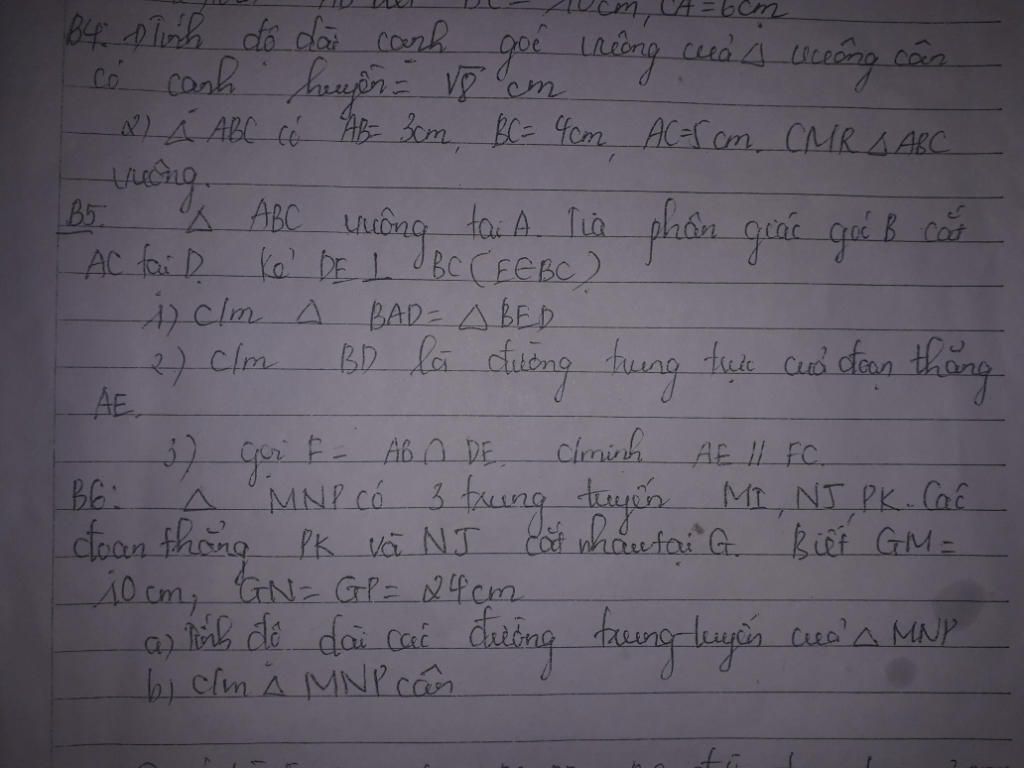 BC = 10cm, CA = 6cm
B4. 1) Tính độ dài cạnh góc vuông của Δ vuông cân
có cạnh huyền = √8 cm
2) Δ ABC có AB = 3cm, BC = 4cm, AC = 5cm. CMR Δ ABC
vuông.
B5. Δ ABC vuông tại A. Tia phân giác góc B cắt
AC tại D. Kẻ DE ⊥ BC (E∈BC)
1) C/m Δ BAD = Δ BED
2.) C/m BD là đường trung trực của đoạn thẳng
AE.
3) gọi F = AB ∩ DE. C/minh AE // FC.
B6: Δ MNP có 3 trung tuyến MI, NJ, PK. Các
đoạn thẳng PK và NJ cắt nhau tại G. Biết GM =
10cm, GN = GP = 24cm
a) Tính độ dài các đường trung tuyến của Δ MNP
b) C/m Δ MNP cân